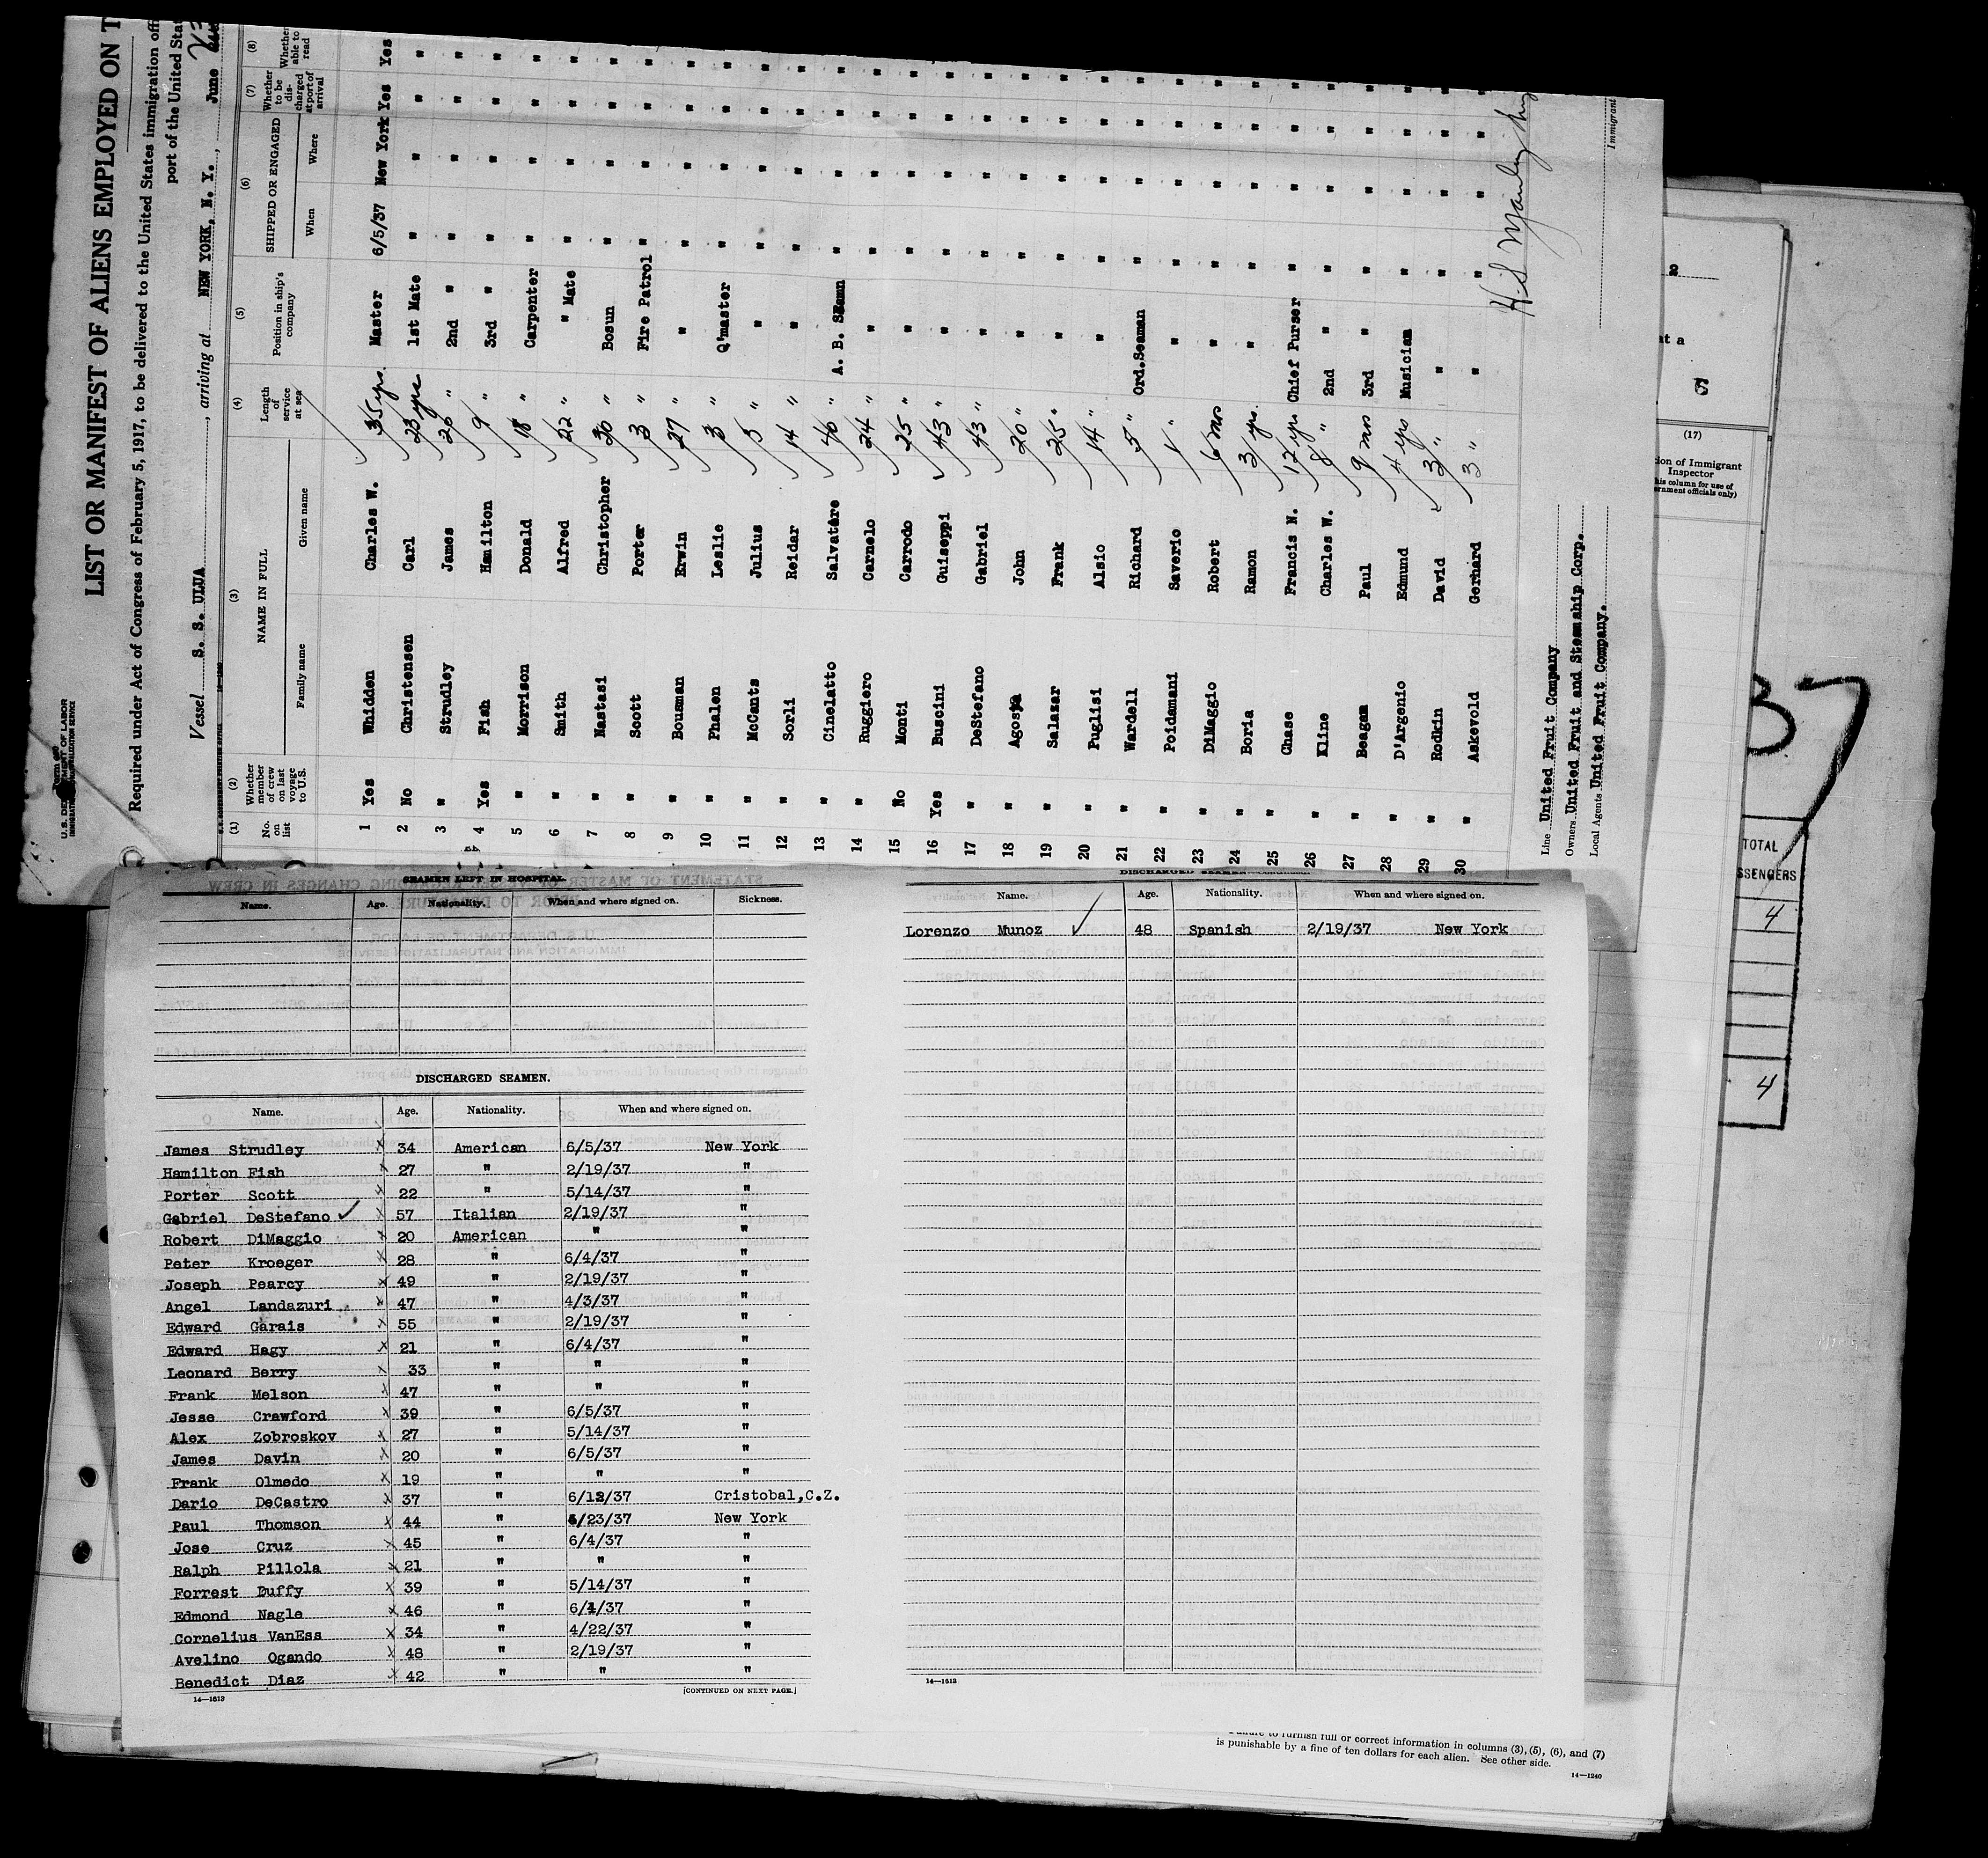 U. S. DEPARTMENT OF LABOR
IMMIGRATION AND NATURALIZATION SERVICE
LIST OR MANIFEST OF ALIENS EMPLOYED ON T
Required under Act of Congress of February 5, 1917, to be delivered to the United States immigration off
port of the United Sta
Vessel S. S. ULUA , arriving at NEW YORK, N. Y. , June
(1) (2) (3) (4) (5) (6) (7) (8)
No. on list Whether member of crew on last voyage to U.S. NAME IN FULL Family name Given name Length of service at sea Position in ship's company SHIPPED OR ENGAGED When Where Whether to be discharged at port of arrival Whether able to read
1 Yes Whidden Charles W. 35 yrs. Master 6/5/37 New York Yes Yes
2 No Christensen Carl 23 yrs 1st Mate " " " "
3 " Strudley James 26 " 2nd " " " " "
4 Yes Fish Hamilton 9 " 3rd " " " " "
5 " Morrison Donald 18 " Carpenter " " " "
6 " Smith Alfred 22 " " Mate " " " "
7 " Nastasi Christopher 30 " Bosun " " " "
8 " Scott Porter 3 " Fire Patrol " " " "
9 " Bousman Erwin 27 " " " " " "
10 " Phalen Leslie 3 " Q'master " " " "
11 " McCants Julius 5 " " " " " "
12 " Sorli Reidar 14 " " " " " "
13 " Cinelatto Salvatore 40 " A. B. Seamn " " " "
14 " Ruggiero Carnelo 24 " " " " " "
15 No Monti Carrodo 25 " " " " " "
16 Yes Buscini Guiseppi 43 " " " " " "
17 " DeStefano Gabriel 43 " " " " " "
18 " Agosta John 20 " " " " " "
19 " Salazar Frank 25 " " " " " "
20 " Puglisi Alsio 14 " " " " " "
21 " Wardell Richard 5 " Ord.Seaman " " " "
22 " Poidamani Saverio 1 " " " " " "
23 " DiMaggio Robert 6 mos " " " " "
24 " Boria Ramon 3 yrs. " " " " "
25 " Chase Francis N. 17 yrs Chief Purser " " " "
26 " Kline Charles W. 8 " 2nd " " " " "
27 " Beagan Paul 9 mos 3rd " " " " "
28 " D'Argenio Edmund 4 yrs Musician " " " "
29 " Rodkin David 3 " " " " " "
30 " Askevold Gerhard 3 " " " " " "
Line United Fruit Company
Owners United Fruit and Steamship Corp.
Local Agents United Fruit Company.
Immigrant
at a
(17)
ion of Immigrant
Inspector
his column for use of
ernment officials only)
37
TOTAL
SSENGERS
4
4
SEAMEN LEFT IN HOSPITAL.
Name. Age. Nationality. When and where signed on. Sickness.
DISCHARGED SEAMEN.
Name. Age. Nationality. When and where signed on.
James Strudley 34 American 6/5/37 New York
Hamilton Fish 27 " 2/19/37 "
Porter Scott 22 " 5/14/37 "
Gabriel DeStefano 57 Italian 2/19/37 "
Robert DiMaggio 20 American " "
Peter Kroeger 28 " 6/4/37 "
Joseph Pearcy 49 " 2/19/37 "
Angel Landazuri 47 " 4/3/37 "
Edward Garais 55 " 2/19/37 "
Edward Hagy 21 " 6/4/37 "
Leonard Berry 33 " " "
Frank Melson 47 " " "
Jesse Crawford 39 " 6/5/37 "
Alex Zobroskov 27 " 5/14/37 "
James Davin 20 " 6/5/37 "
Frank Olmedo 19 " " "
Dario DeCastro 37 " 6/12/37 Cristobal,C.Z.
Paul Thomson 44 " 4/23/37 New York
Jose Cruz 45 " 6/4/37 "
Ralph Pillola 21 " " "
Forrest Duffy 39 " 5/14/37 "
Edmond Nagle 46 " 6/4/37 "
Cornelius VanEss 34 " 4/22/37 "
Avelino Ogando 48 " 2/19/37 "
Benedict Diaz 42 " " "
14—1613 [CONTINUED ON NEXT PAGE.]
DISCHARGED SEAMEN
Name. Age. Nationality. When and where signed on.
Lorenzo Munoz 48 Spanish 2/19/37 New York
14—1613
Failure to furnish full or correct information in columns (3), (5), (6), and (7)
is punishable by a fine of ten dollars for each alien. See other side.
14—1240